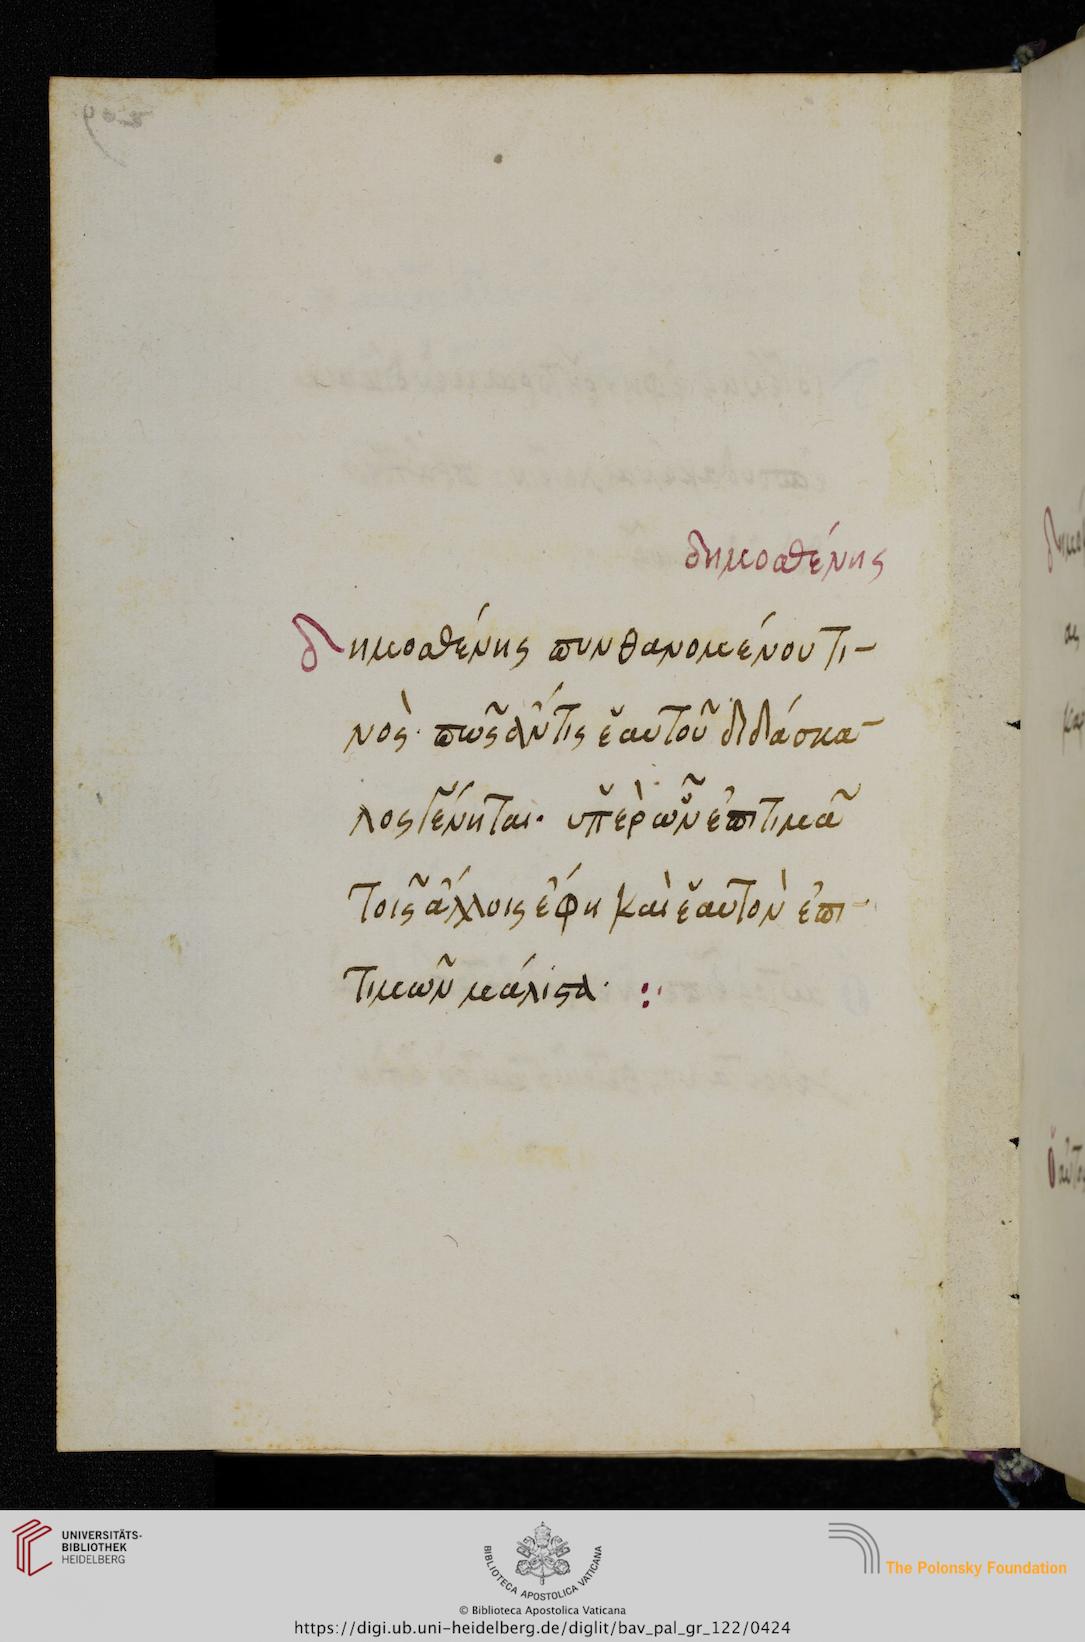 209
δημοσθένης
δημοσθένης πυνθανομένου τι-
νὸς· πῶς ἄν τις ἑαυτοῦ διδάσκα-
λος γένηται· ὑπὲρ ὧν ἐπιτιμᾶ
τοῖς ἄλλοις ἔφη καὶ ἑαυτὸν ἐπι-
τιμῶν μάλιστα· :·
UNIVERSITÄTS-
BIBLIOTHEK
HEIDELBERG
BIBLIOTECA APOSTOLICA VATICANA
© Biblioteca Apostolica Vaticana
The Polonsky Foundation
https://digi.ub.uni-heidelberg.de/diglit/bav_pal_gr_122/0424